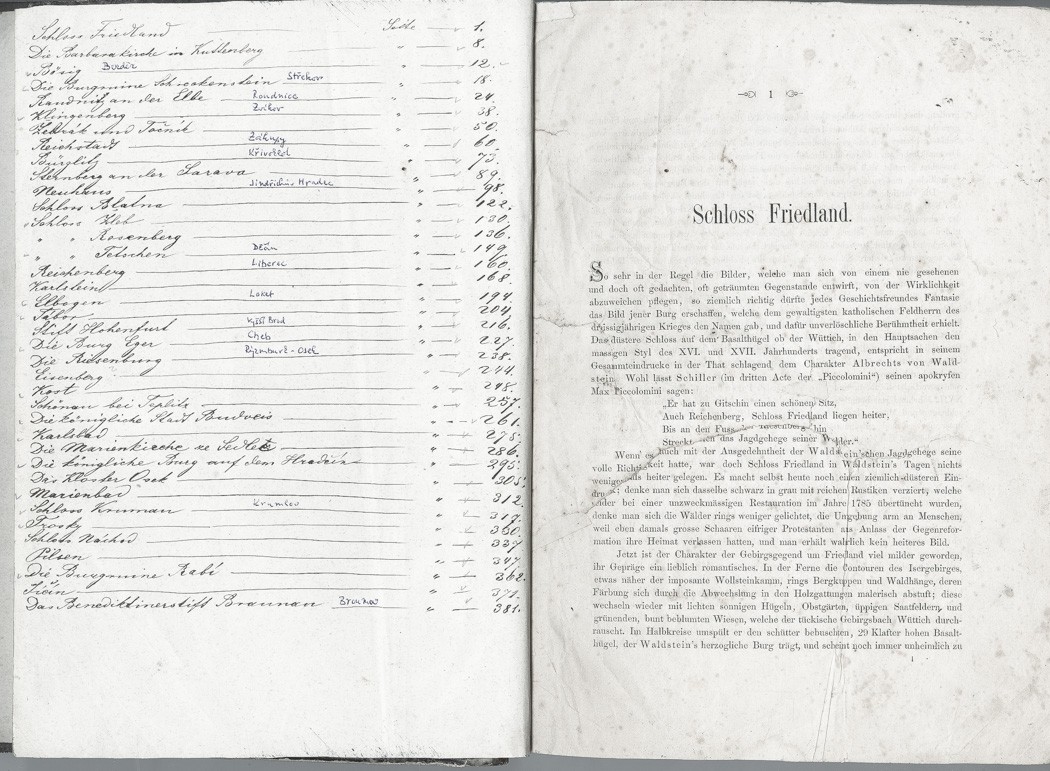 Schloss Friedland Seite 1.
Die Barbarakirche in Kuttenberg " 8.
Bösig Bezděz " 12.
Die Burgruine Schreckenstein Střekov " 18.
Raudnitz an der Elbe Roudnice " 24.
Klingenberg Zvíkov " 38.
Žebrák und Točník " 50.
Reichstadt Zákupy " 60.
Bürglitz Křivoklát " 73.
Sternberg an der Sazava " 89.
Neuhaus Jindřichův Hradec " 98.
Schloss Blatna " 122.
Schloss Žleb " 130.
" " Rosenberg " 136.
" " Tetschen Děčín " 149.
Reichenberg Liberec " 160.
Karlstein " 168.
Elbogen Loket " 194.
Tabor " 204.
Stift Hohenfurt Vyšší Brod " 216.
Die Burg Eger Cheb " 227.
Die Riesenburg Rýzmburk - Osek " 238.
Eisenberg " 244.
Kost " 248.
Schönau bei Teplitz " 257.
Die königliche Stadt Budweis " 261.
Karlsbad " 275.
Die Marienkirche ze Sedletz " 286.
Die königliche Burg auf dem Hradčin " 295.
Das Kloster Osek " 305.
Marienbad " 312.
Schloss Krumau Krumlov " 319.
Trosky " 330.
Schloss Náchod " 339.
Pilsen " 347.
Die Burgruine Rabí " 362.
Jičín " 371.
Das Benediktinerstift Braunau Broumov " 381.
1
Schloss Friedland.
So sehr in der Regel die Bilder, welche man sich von einem nie gesehenen
und doch oft gedachten, oft geträumten Gegenstande entwirft, von der Wirklichkeit
abzuweichen pflegen, so ziemlich richtig dürfte jedes Geschichtsfreundes Fantasie
das Bild jener Burg erschaffen, welche dem gewaltigsten katholischen Feldherrn des
dreissigjährigen Krieges den Namen gab, und dafür unverlöschliche Berühmtheit erhielt.
Das düstere Schloss auf dem Basalthügel ob der Wüttich, in den Hauptsachen den
massigen Styl des XVI. und XVII. Jahrhunderts tragend, entspricht in seinem
Gesammteindrucke in der That schlagend dem Charakter Albrechts von Wald-
stein. Wohl lässt Schiller (im dritten Acte der „Piccolomini“) seinen apokryfen
Max Piccolomini sagen:
„Er hat zu Gitschin einen schönen Sitz,
Auch Reichenberg, Schloss Friedland liegen heiter,
Bis an den Fuss der Riesenberg hin
Streckt das Jagdgehege seiner Wälder.“
Wenn es auch mit der Ausgedehntheit der Waldstein'schen Jagdgehege seine
volle Richtigkeit hatte, war doch Schloss Friedland in Waldstein's Tagen nichts
weniger als heiter gelegen. Es macht selbst heute noch einen ziemlich düsteren Ein-
druck; denke man sich dasselbe schwarz in gram mit reichen Rustiken verziert, welche
leider bei einer unzweckmässigen Restauration im Jahre 1785 übertüncht wurden,
denke man sich die Wälder rings weniger gelichtet, die Umgebung arm an Menschen,
weil eben damals grosse Schaaren eifriger Protestanten als Anlass der Gegenrefor-
mation ihre Heimat verlassen hatten, und man erhält wahrlich kein heiteres Bild.
Jetzt ist der Charakter der Gebirgsgegend um Friedland viel milder geworden,
ihr Gepräge ein lieblich romantisches. In der Ferne die Contouren des Isergebirges,
etwas näher der imposante Wollsteinkamm, rings Bergkuppen und Waldhänge, deren
Färbung sich durch die Abwechslung in den Holzgattungen malerisch abstuft; diese
wechseln wieder mit lichten sonnigen Hügeln, Obstgärten, üppigen Saatfeldern, und
grünenden, bunt beblumten Wiesen, welche der tückische Gebirgsbach Wüttich durch-
rauscht. Im Halbkreise umspült er den schütter bebuschten, 29 Klafter hohen Basalt-
hügel, der Waldstein's herzogliche Burg trägt, und scheint noch immer unheimlich zu
1